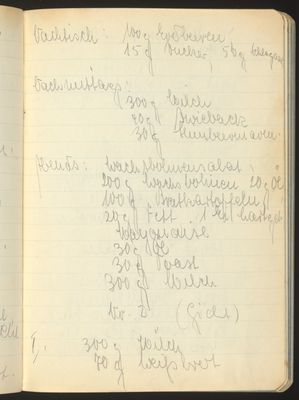 Nachtisch: 100g Erdbeeren
15g Zucker, 50g
Nachmittags:
300g Milch
40g Zwieback
30g Himbeermarm.
Abends: Wachsbohnensalat:
200g Wachsbohnen 20g Öl
100g Bratkartoffeln
20g Fett 1 hartgek
Mayonaise
30g Öl
30g Toast
300g Milch
Nr. 2 (Gicht)
I, 300g Milch
70g Weißbrot